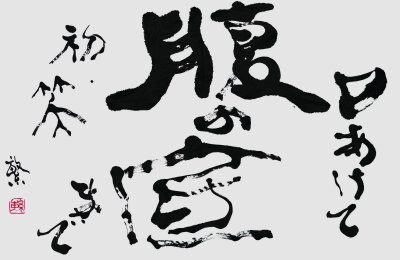 口あけて
腹の底
まで
初笑
繁